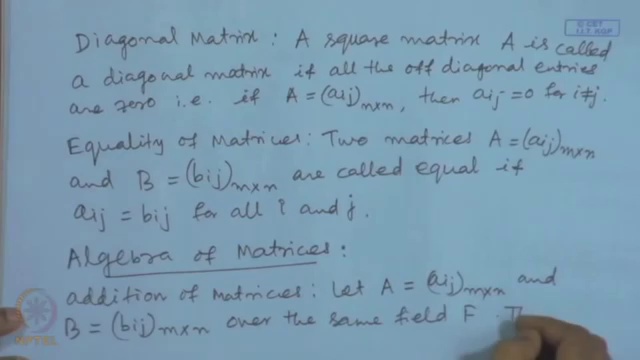 © CET
I.I.T. KGP
Diagonal Matrix : A square matrix A is called
a diagonal matrix if all the off diagonal entries
are zero i.e. if A = (aij)n×n, then aij = 0 for i≠j.
Equality of Matrices : Two matrices A = (aij)m×n
and B = (bij)m×n are called equal if
aij = bij for all i and j.
Algebra of Matrices :
addition of Matrices : Let A = (aij)m×n and
B = (bij)m×n over the same field F .
NPTEL